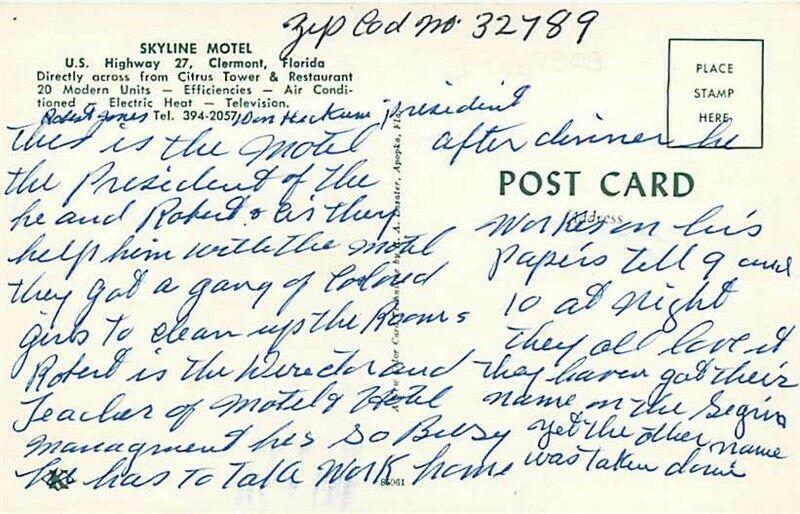 Zip Cod no. 32789
SKYLINE MOTEL
U.S. Highway 27, Clermont, Florida
Directly across from Citrus Tower & Restaurant
20 Modern Units — Efficiencies — Air Condi-
tioned — Electric Heat — Television.
Tel. 394-2057
Robert Jones Don president
this is the Motel
the President of the
he and Robert & is they
help him with the motel
they got a gang of Colored
girls to clean up the Rooms
Robert is the Director and
Teacher of Motel & Hotel
managment hes so Buisy
he has to Talk Work home
PLACE
STAMP
HERE
after dinner he
POST CARD
Address
Works on his
Papers Tell 9 and
10 at night
they all love it
they havent got their
name on the
yet the other name
was taken down
85061